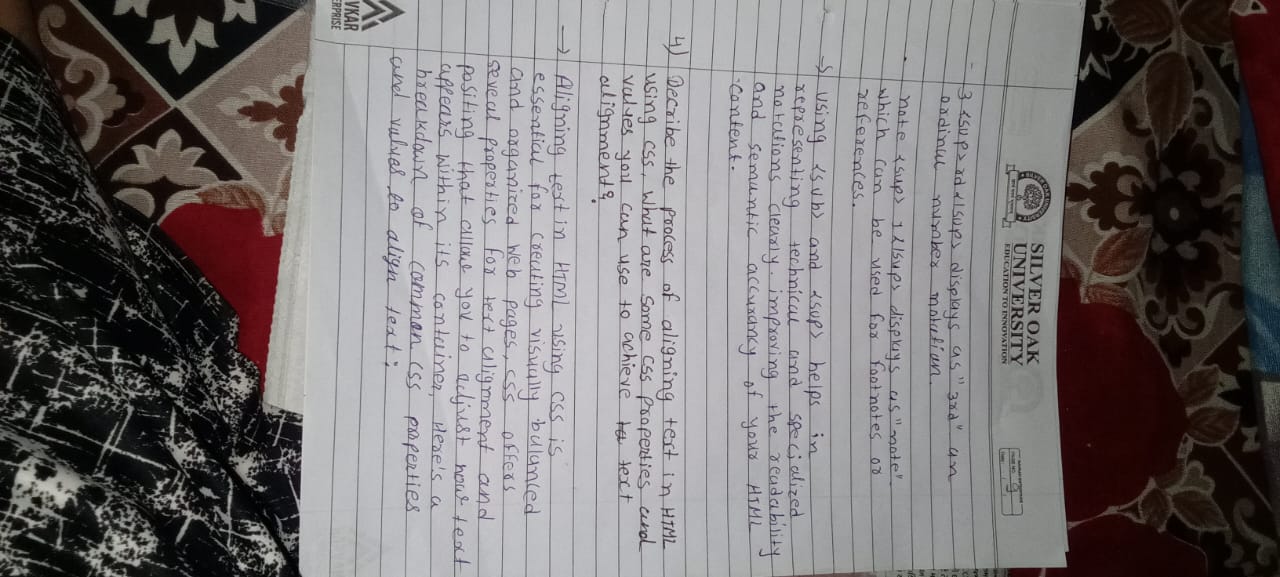 SILVER OAK
UNIVERSITY
EDUCATION TO INNOVATION
- 3 <sup> rd </sup> displays as "3rd" an
ordinal number notation.
• note <sup> 1 </sup> display as "note".
which can be used for footnotes or
references.
-> using <sub> and <sup> helps in
representing technical and specialized
notations clearly. improving the readability
and semantic accuracy of your HTML
content.
4) Decribe the process of aligning text in HTML
using css, what are some css properties and
values you can use to achieve text
alignment?
-> Aligning text in HTML using css is
essential for creating visually balanced
and organized web pages, css offers
seveal properties for text alignment and
positing that allow you to adjust how text
appears within its container, Here's a
breakdown of common css properties
and values to align text:
VKAR
ERPRISE